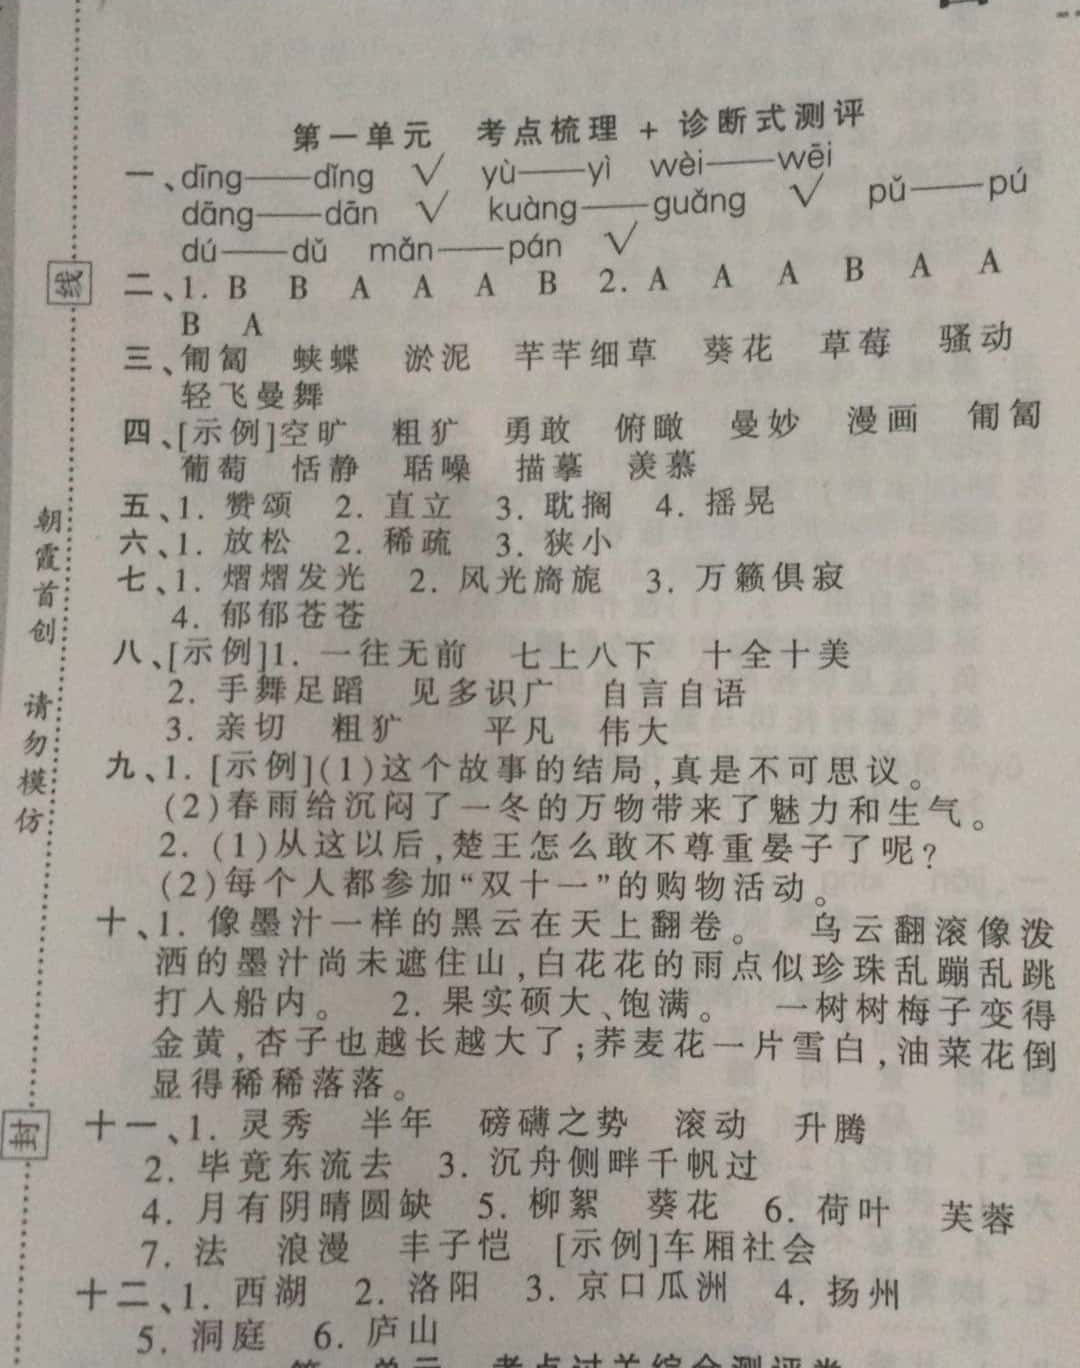 第一单元 考点梳理 + 诊断式测评
一、dīng——dǐng √ yù——yì wèi——wēi
dāng——dān √ kuàng——guǎng √ pǔ——pú
dú——dǔ mǎn——pán √
二、1. B B A A A B 2. A A A B A A
B A
三、匍匐 蛱蝶 淤泥 芊芊细草 葵花 草莓 骚动
轻飞曼舞
四、[示例]空旷 粗犷 勇敢 俯瞰 曼妙 漫画 匍匐
葡萄 恬静 聒噪 描摹 羡慕
五、1. 赞颂 2. 直立 3. 耽搁 4. 摇晃
六、1. 放松 2. 稀疏 3. 狭小
七、1. 熠熠发光 2. 风光旖旎 3. 万籁俱寂
4. 郁郁苍苍
八、[示例]1. 一往无前 七上八下 十全十美
2. 手舞足蹈 见多识广 自言自语
3. 亲切 粗犷 平凡 伟大
九、1. [示例](1)这个故事的结局,真是不可思议。
(2)春雨给沉闷了一冬的万物带来了魅力和生气。
2. (1)从这以后,楚王怎么敢不尊重晏子了呢?
(2)每个人都参加“双十一”的购物活动。
十、1. 像墨汁一样的黑云在天上翻卷。 乌云翻滚像泼
洒的墨汁尚未遮住山,白花花的雨点似珍珠乱蹦乱跳
打人船内。 2. 果实硕大、饱满。 一树树梅子变得
金黄,杏子也越长越大了;荞麦花一片雪白,油菜花倒
显得稀稀落落。
十一、1. 灵秀 半年 磅礴之势 滚动 升腾
2. 毕竟东流去 3. 沉舟侧畔千帆过
4. 月有阴晴圆缺 5. 柳絮 葵花 6. 荷叶 芙蓉
7. 法 浪漫 丰子恺 [示例]车厢社会
十二、1. 西湖 2. 洛阳 3. 京口瓜洲 4. 扬州
5. 洞庭 6. 庐山
线
朝霞首创 请勿模仿
封